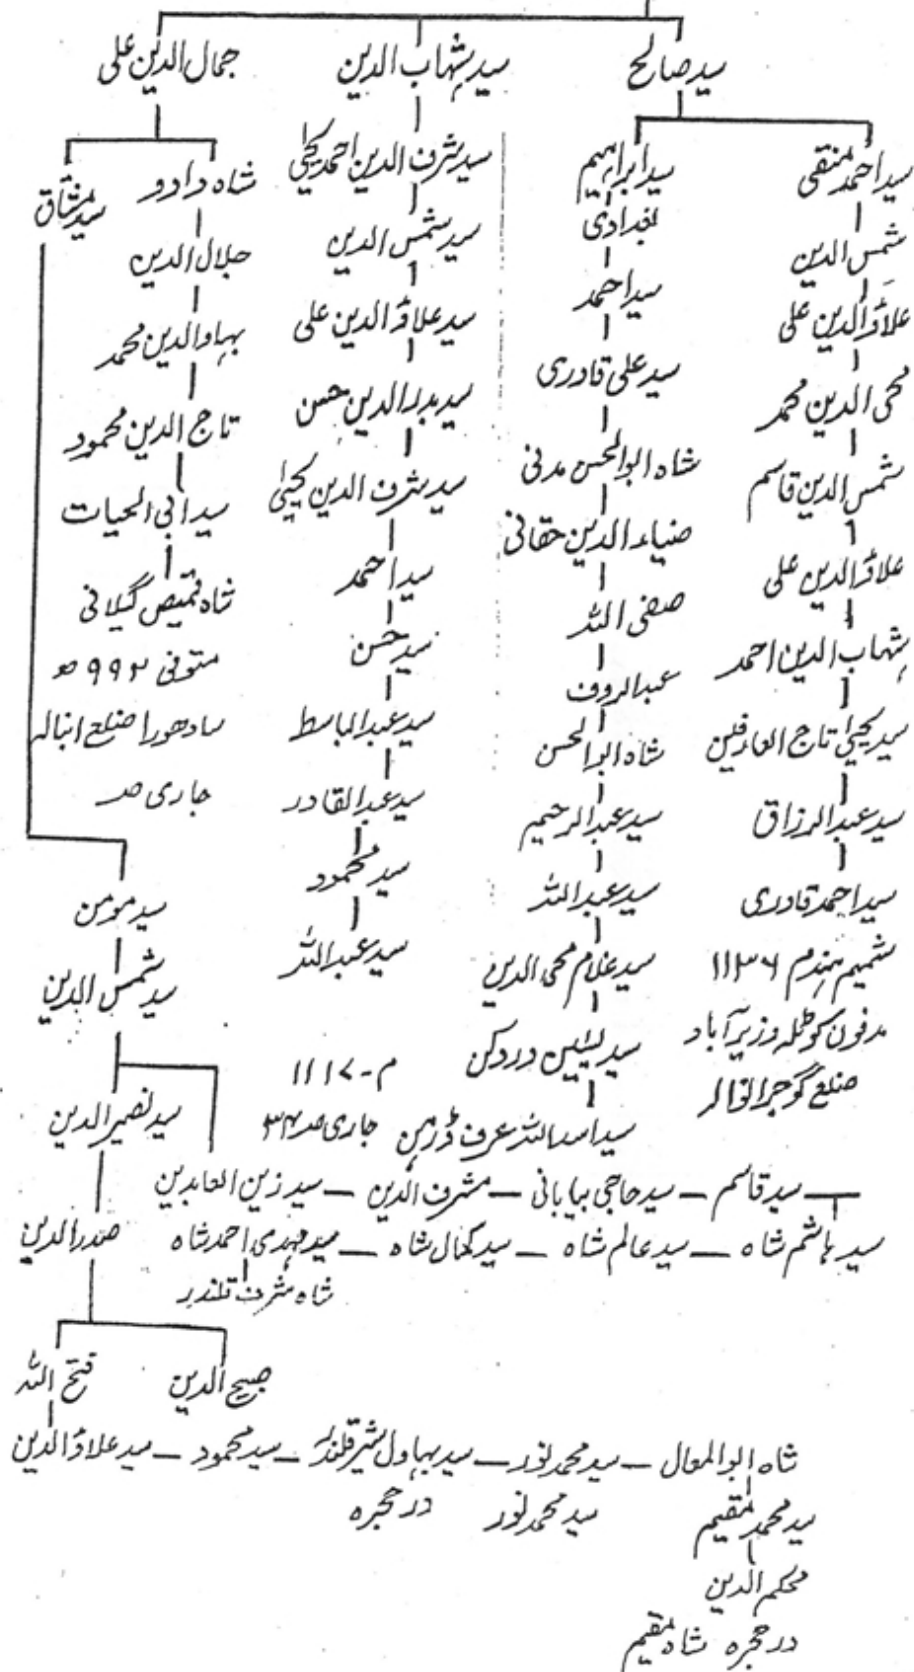 سید صالح
سید شہاب الدین
جمال الدین علی
سید احمد متقی
شمس الدین
علاؤ الدین علی
محی الدین محمد
شمس الدین قاسم
علاؤ الدین علی
شہاب الدین احمد
سید یحییٰ تاج العارفین
سید عبدالرزاق
سید احمد قادری
شمیم ہند م ۱۱۳۶
مدفون کوٹلہ وزیر آباد
ضلع گوجرانوالہ
سید ابراہیم
بغدادی
سید احمد
سید علی قادری
شاہ ابوالحسن مدنی
ضیاء الدین حقانی
صفی اللہ
عبدالروف
شاہ ابوالحسن
سید عبدالرحیم
سید عبداللہ
سید غلام محی الدین
سید یٰسین در دکن
سید اسد اللہ عرف
سید شرف الدین احمد یحییٰ
سید شمس الدین
سید علاؤ الدین علی
سید بدر الدین حسن
سید شرف الدین یحییٰ
سید احمد
سید حسن
سید عبدالباسط
سید عبدالقادر
سید محمود
سید عبداللہ
م - ۱۱۱۷
جاری صہ ۳۴
شاہ دادو
جلال الدین
بہاوالدین محمد
تاج الدین محمود
سید ابی الحیات
شاہ قمیص گیلانی
متوفی ۹۹۲ ھ
سادھورا ضلع انبالہ
جاری صہ
سید مشتاق
سید مومن
سید شمس الدین
سید نصیر الدین
سید قاسم – سید حاجی بیابانی – مشرف الدین – سید زین العابدین
سید ہاشم شاہ – سید عالم شاہ – سید کمال شاہ – سید مہدی احمد شاہ
شاہ شرف قلندر
صدرالدین
صبیح الدین
فتح اللہ
شاہ ابوالمعال – سید محمد نور – سید بہاول شیر قلندر – سید محمود – سید علاؤ الدین
سید محمد مقیم
سید محمد نور
در حجرہ
محکم الدین
در حجرہ شاہ مقیم